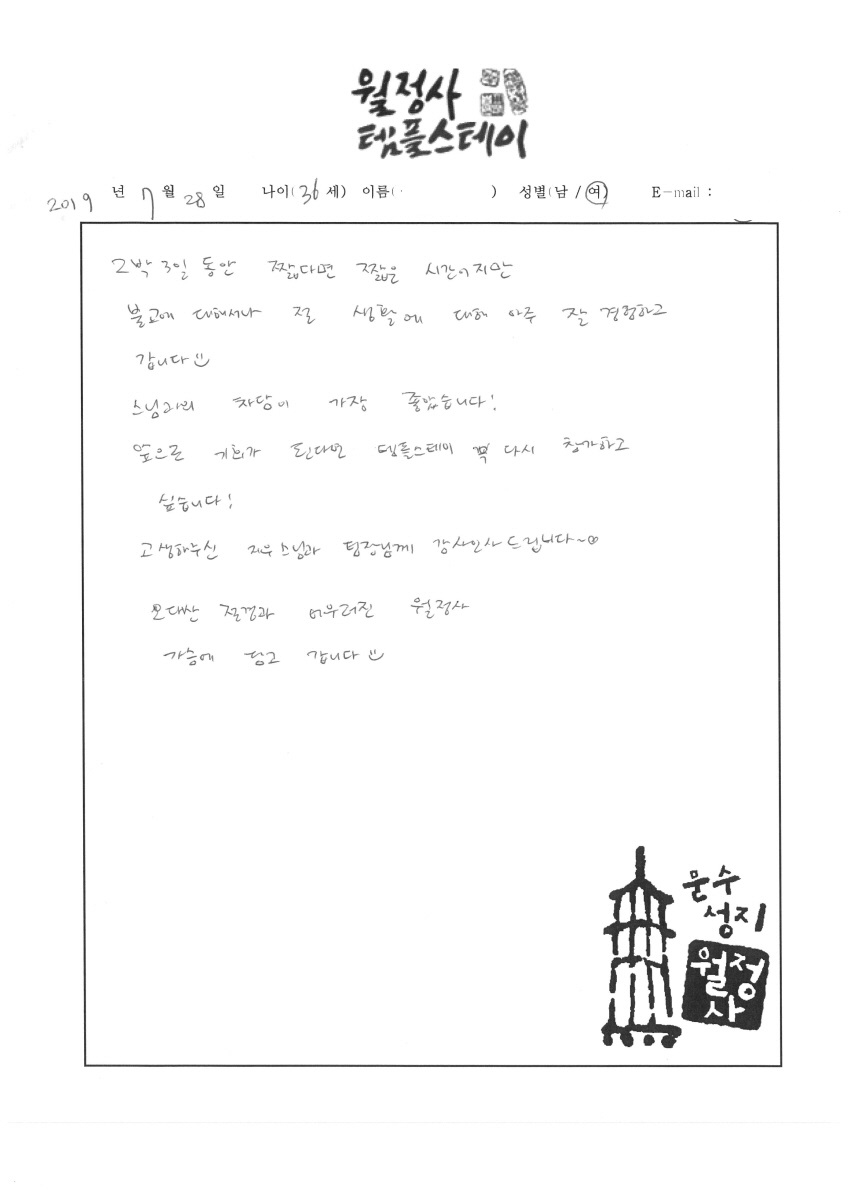 월정사
템플스테이
2019 년 7 월 28 일 나이(36세) 이름( ) 성별(남 / 여) E-mail :
2박 3일 동안 짧다면 짧은 시간이지만
불교에 대해서나 절 생활에 대해 아주 잘 경험하고
갑니다
스님과의 차담이 가장 좋았습니다!
앞으로 기회가 된다면 템플스테이 꼭 다시 참가하고
싶습니다!
고생하주신 지우스님과 팀장님께 감사인사드립니다~♡
오대산 절경과 어우러진 월정사
가슴에 담고 갑니다
문수
성지
월정
사